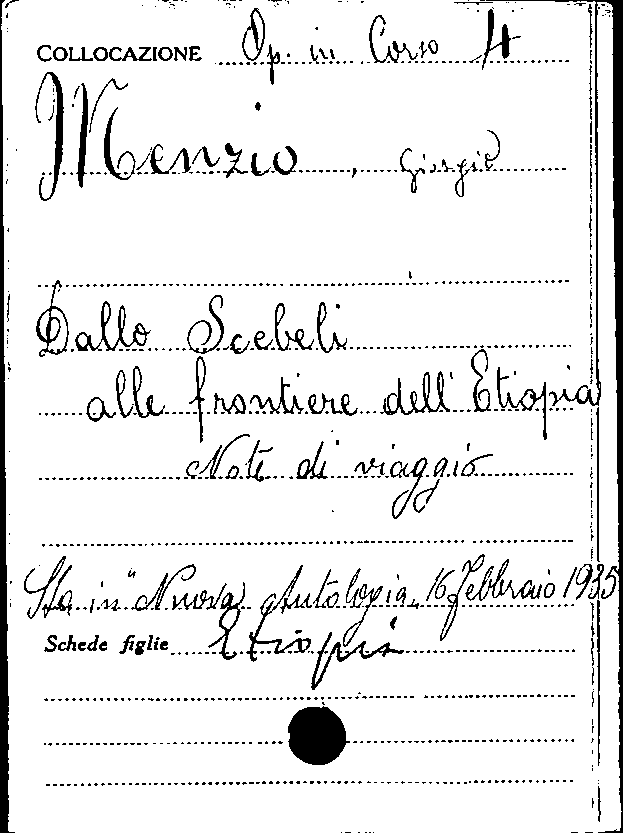 COLLOCAZIONE Op. in Corso 4
Menzio, Giorgio
Dallo Scebeli
alle frontiere dell'Etiopia
Note di viaggio
Sta in "Nuova Antologia„ 16 Febbraio 1935
Schede figlie Etiopia